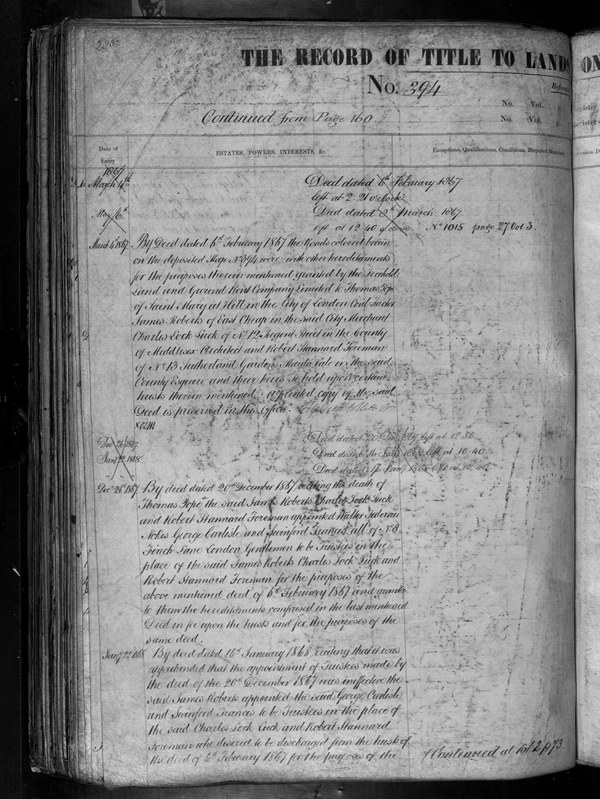 THE RECORD OF TITLE TO LAND
No. 394
No. Vol.
Continued from Page 160
No. Vol.
Date of Entry
ESTATES, POWERS, INTERESTS, &c.
Exceptions, Qualifications, Conditions,
1867
March 4th
Deed dated 6th February 1867
left at 2.20 o'clock
May 6th
Deed dated March 1867
left at 12.40 o'clock No 1015 page 27 Vol 3.
March 4th 1867
By Deed dated 6th February 1867 the Lands colored brown
on the deposited Map No 394 were with other hereditaments
for the purposes therein mentioned granted by the Freehold
Land and Ground Rent Company Limited to Thomas Pope
of Saint Mary at Hill in the City of London Coal Factor
James Roberts of East Cheap in the said City Merchant
Charles Lock Luck of No 12 Regent Street in the County
of Middlesex Architect and Robert Stannard Foreman
of No 13 Sutherland Gardens Maida Vale in the said
County Esquire and their heirs To hold upon certain
trusts therein mentioned. A printed copy of the said
Deed is preserved in this Office.
Dec 26 1867
left at 12.50
Jany 22 1868
left at 10.40
Dec 26th 1867
By deed dated 20th December 1867 reciting the death of
Thomas Pope the said James Roberts Charles Lock Luck
and Robert Stannard Foreman appointed Walter
Stokes George Carlisle and Swinford Francis all of No 8
Finch Lane London Gentlemen to be Trustees in the
place of the said James Roberts Charles Lock Luck and
Robert Stannard Foreman for the purposes of the
above mentioned deed of 6th February 1867 and granted
to them the hereditaments comprised in the last mentioned
Deed in fee upon the trusts and for the purposes of the
same deed.
Jany 22nd 1868
By deed dated 16th January 1868 reciting that it was
apprehended that the appointment of Trustees made by
the deed of the 20th December 1867 was ineffective the
said James Roberts appointed the said George Carlisle
and Swinford Francis to be Trustees in the place of
the said Charles Lock Luck and Robert Stannard
Foreman who desired to be discharged from the trusts of
the deed of 6th February 1867 for the purposes of the
Continued at Vol 2 p 73